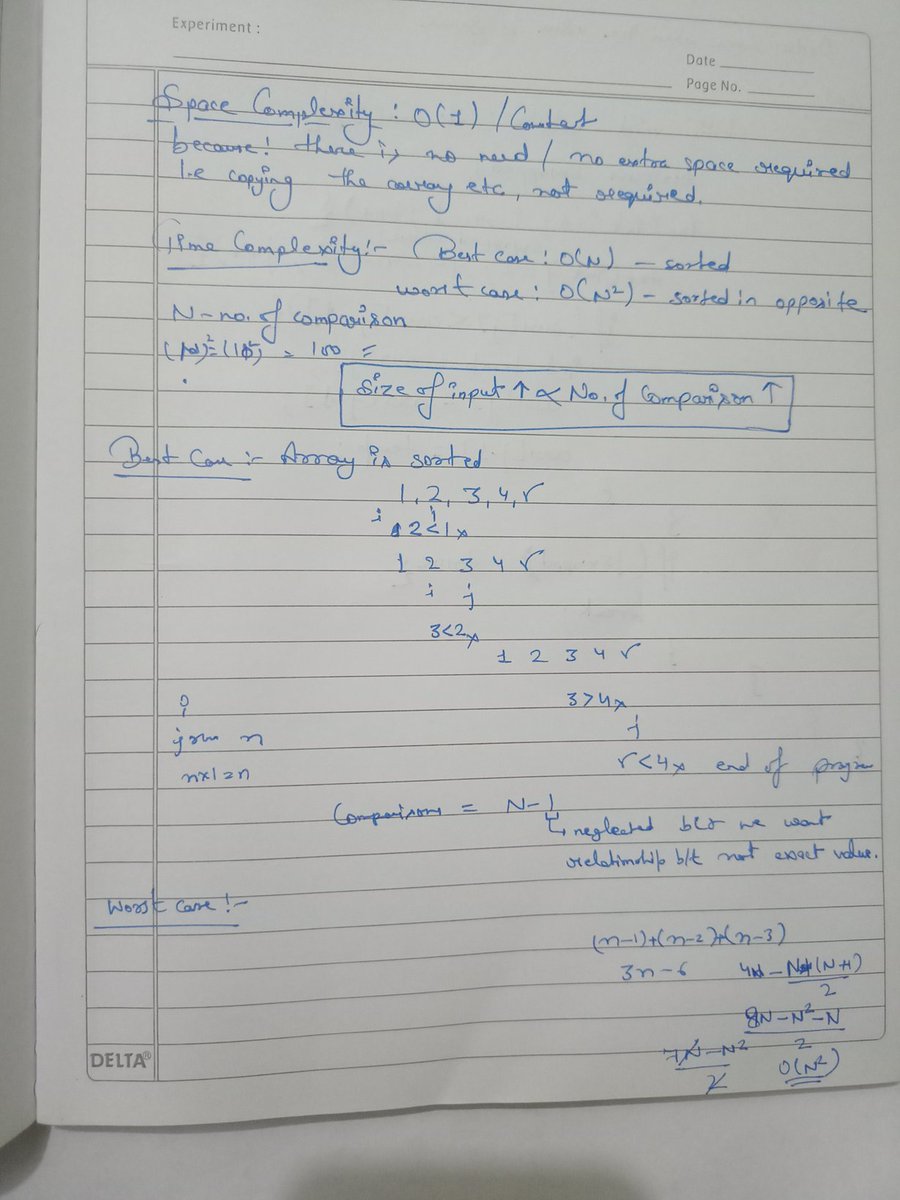 Experiment :
Date
Page No.
Space Complexity : O(1) / Constant
because! there is no need / no extra space required
I.e copying the array etc, not required.
Time Complexity:- Best case : O(N) - sorted
worst case : O(N²) - sorted in opposite
N - no. of comparison
(N)² = (10)² = 100 =
Size of input ↑ ∝ No. of Comparison ↑
Best Case :- Array is sorted
1, 2, 3, 4, 5
i j
2<1 x
1 2 3 4 5
i j
3<2 x
1 2 3 4 5
i 3>4 x
j
n
n×1=n 5<4 x end of
Comparisons = N-1
neglected bcz we want
relationship b/t not exact value.
Worst case :-
(n-1)+(n-2)+(n-3)
3n-6 4N - N(N+1)
2
8N-N²-N
2
7N-N²
2
O(N²)
DELTA®